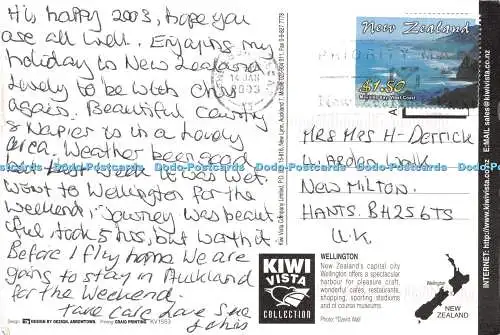 Hi, happy 2003, hope you
are all well. Enjoying my
holiday to New Zealand
lovely to be with Chris
again. Beautiful country
& Napier is in a lovely
area. Weather been good
but last week it was wet.
Went to Wellington for the
weekend, journey was beaut
iful, took 5 hrs, but worth it
Before I fly home we are
going to stay in Auckland
for the Weekend.
Take care love Sue
& Chris
Design: DESIGN BY DEZIGN, ARROWTOWN. Printing: CRAIG PRINTING KV1553
14 JAN
2003
New Zealand
$1.50
West Coast
MRS MRS H-DERRICK
WALK
NEW MILTON.
HANTS. BH25 6TS
U.K.
KIWI
VISTA
COLLECTION
WELLINGTON
New Zealand's capital city
Wellington offers a spectacular
harbour for pleasure craft,
wonderful cafes, restaurants,
shopping, sporting stadiums
and of course museums.
Photo: "David Wall"
Wellington
NEW
ZEALAND
INTERNET: http://www.kiwivista.co.nz E-MAIL sales@kiwivista.co.nz
Dodo-Postcards Dodo-Postcards Dodo-Postcards Dodo-Postcards Dodo-Postcards